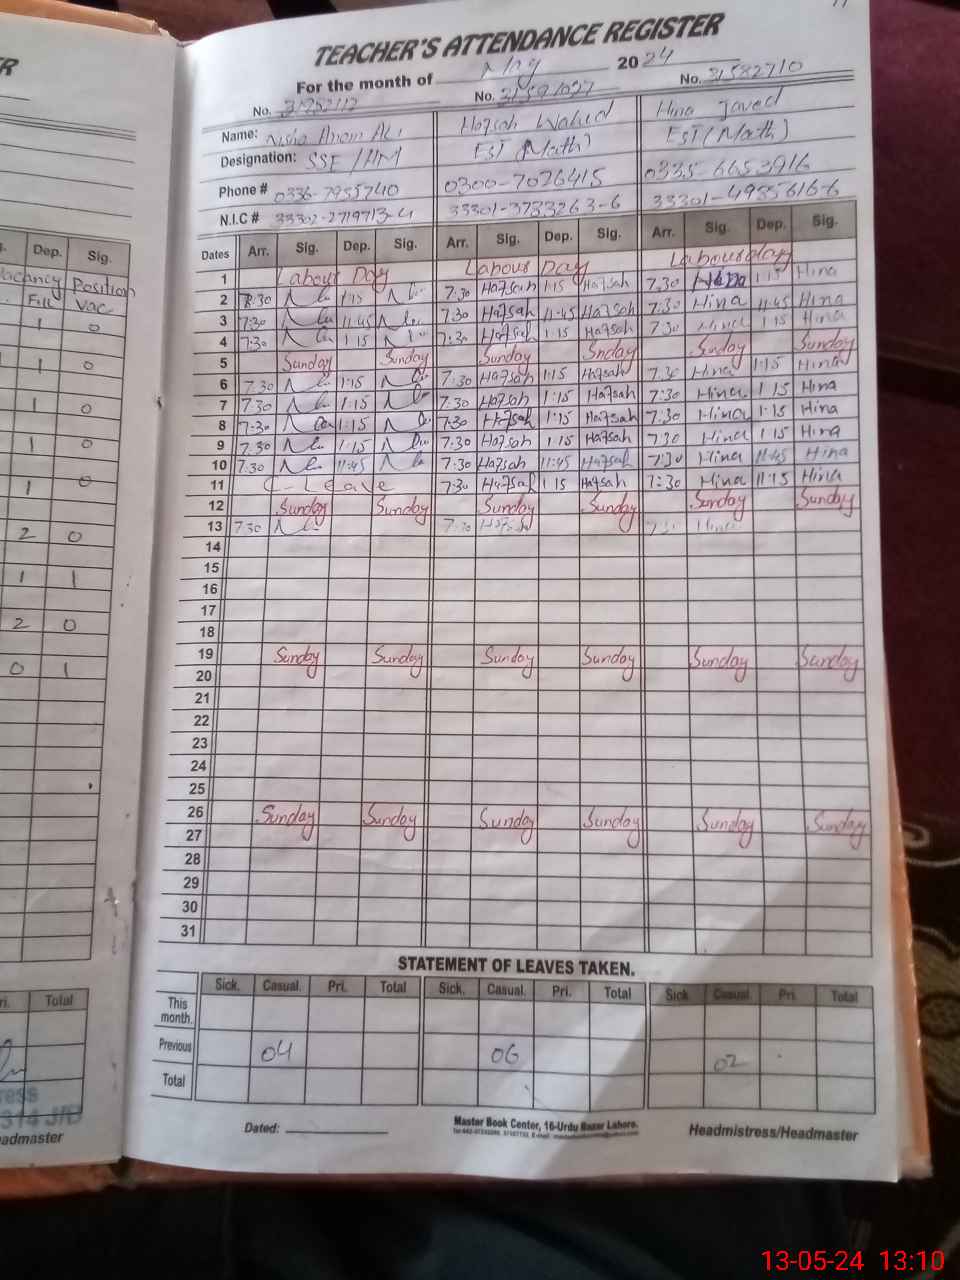 TEACHER'S ATTENDANCE REGISTER
For the month of May 2024
No. No. No. 31582710
Name: Hafsah Wahed Hina Javed
Designation: SSE / HM EST (Math) EST (Math)
Phone # 0336-7955740 0300-7026415 0335-6653916
N.I.C # 33302-2719713-4 33301-3733263-6
Dates Arr. Sig. Dep. Sig. Arr. Sig. Dep. Sig. Arr. Sig. Dep. Sig.
1 Labour Day Labour Day Labour day
2 1:15 7:30 Hafsah 1:15 Hafsah 7:30 Hina 1:15 Hina
3 7:30 11:45 7:30 Hafsah 11:45 Hafsah 7:30 Hina 11:45 Hina
4 7:30 1:15 7:30 Hafsah 1:15 Hafsah 7:30 Hina 1:15 Hina
5 Sunday Sunday Sunday Snday Sunday Sunday
6 7:30 1:15 7:30 Hafsah 1:15 Hafsah 7:30 Hina 1:15 Hina
7 7:30 1:15 7:30 Hafsah 1:15 Hafsah 7:30 Hina 1:15 Hina
8 7:30 1:15 7:30 Hafsah 1:15 Hafsah 7:30 Hina 1:15 Hina
9 7:30 1:15 7:30 Hafsah 1:15 Hafsah 7:30 Hina 1:15 Hina
10 7:30 11:45 7:30 Hafsah 11:45 Hafsah 7:30 Hina 11:45 Hina
11 C-Leave 7:30 Hafsah 1:15 Hafsah 7:30 Hina 1:15 Hina
12 Sunday Sunday Sunday Sunday Sunday Sunday
13 7:30 7:30 Hafsah 7:30 Hina
14
15
16
17
18
19 Sunday Sunday Sunday Sunday Sunday Sunday
20
21
22
23
24
25
26 Sunday Sunday Sunday Sunday Sunday Sunday
27
28
29
30
31
STATEMENT OF LEAVES TAKEN.
Sick. Casual. Pri. Total Sick. Casual. Pri. Total Sick Casual. Pri. Total
This month.
Previous 04 06 02
Total
Dated:
Master Book Center, 16-Urdu Bazar Lahore.
Headmistress/Headmaster
Dep. Sig.
Vacancy Position
Fill Vac
1 0
1 0
1 0
1 0
1 0
2 0
1 1
2 0
0 1
Pri. Total
314 J/B
eadmaster
13-05-24 13:10